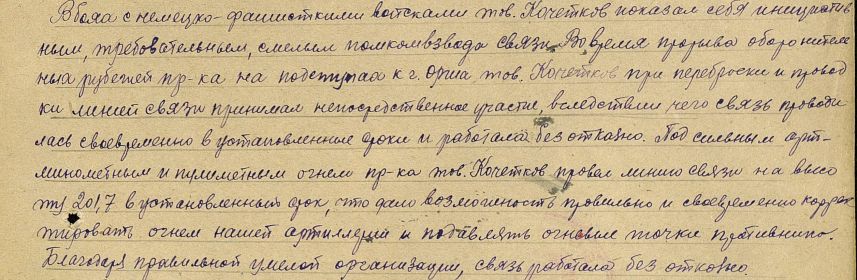 В боях с немецко-фашисткими войсками тов. Кочетков показал себя инициатив
ным, требовательным, смелым помкомвзвода связи. Во время прорыва оборонитель
ных рубежей пр-ка на подступах к г. Орша тов. Кочетков при переброски и провод
ки линий связи принимал непосредственное участие, вследствии чего связь проводи
лась своевременно в установленные сроки и работала безотказно. Под сильным арт-
минометным и пулиметным огнем пр-ка тов. Кочетков провел линию связи на высо
ту 201,7 в установленный срок, что дало возможность правильно и своевременно коррек
тировать огнем нашей артиллерии и подавлять огневые точки противника.
Благодаря правильной умелой организации, связь работала без отказно.